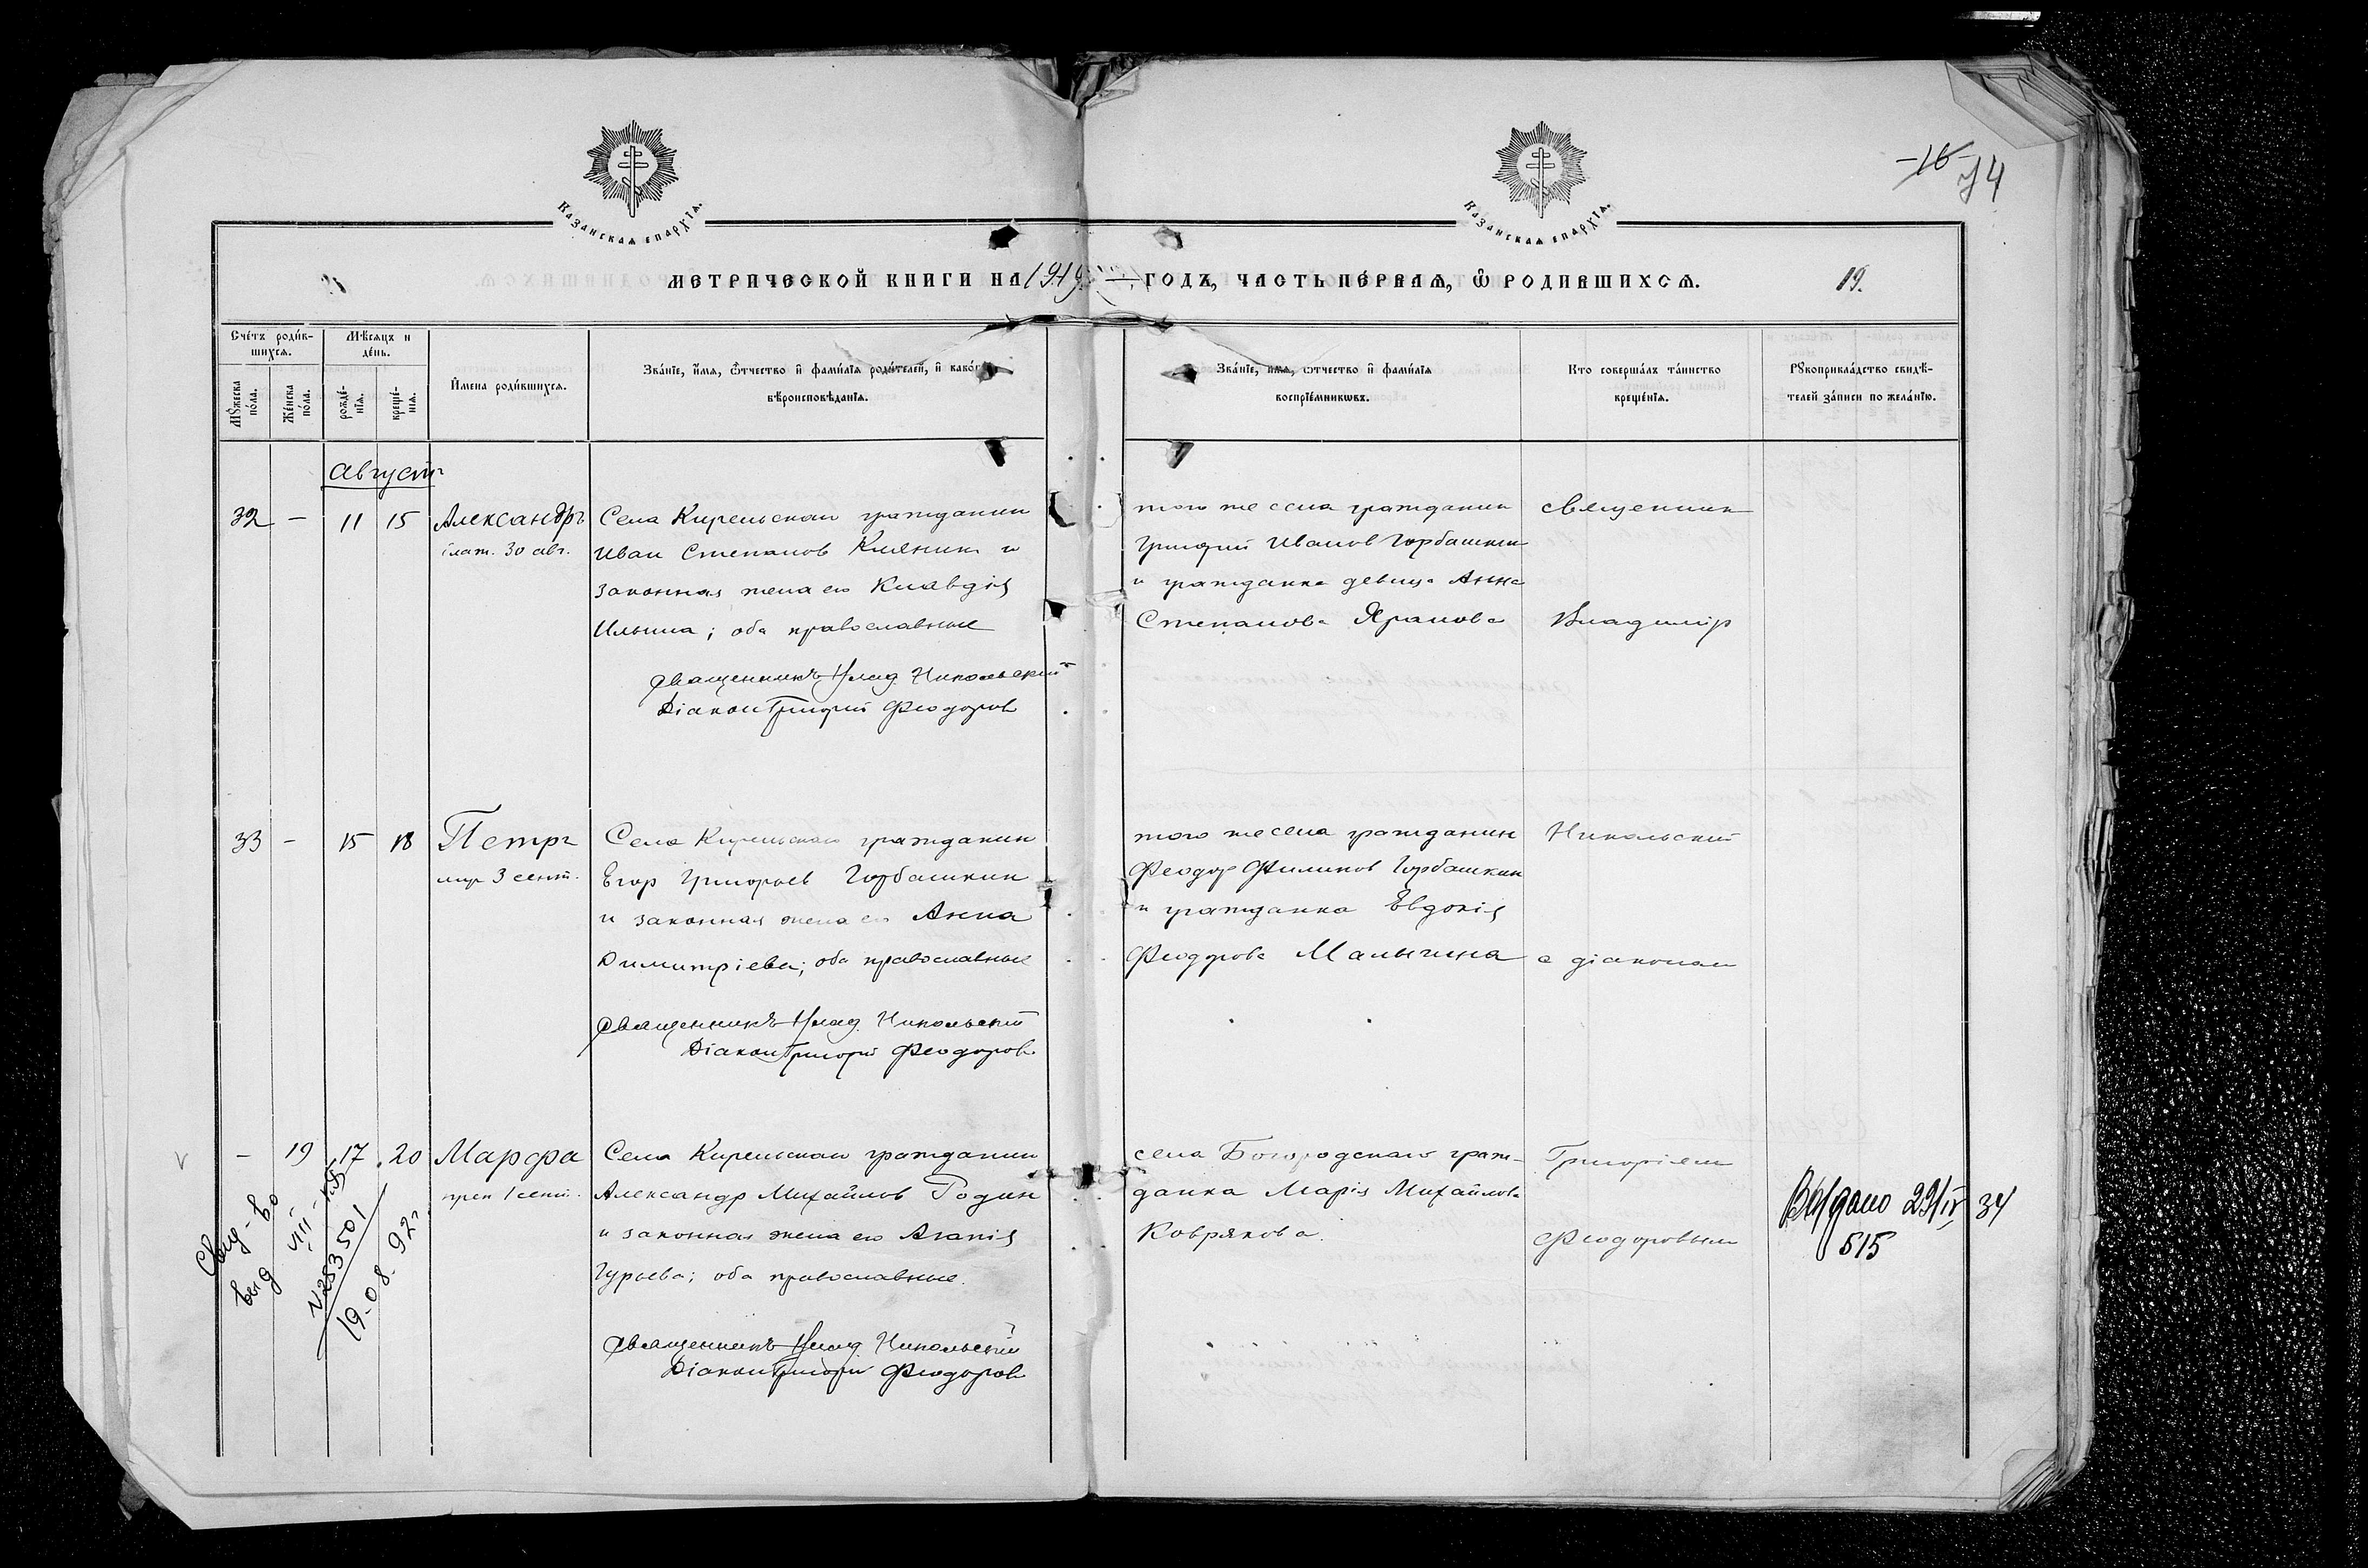 -16-
74
Казанская Епархїѧ.
Казанская Епархїѧ.
Метрической книги на 1919 годъ, часть пе́рваѧ, ѡ҆ родившихсѧ.
19.
Сче́тъ роди́вшихсѧ.
Мѣ́сяцъ и де́нь.
Мꙋ́жеска по́ла.
Же́нска по́ла.
рожде́нїѧ.
креще́нїѧ.
И҆мена роди́вшихсѧ.
Зва́нїе, и҆́мѧ, ѻ҆́тчество и҆ фами́лїѧ роди́телей, и҆ како́гѡ
вѣроисповѣ́данїѧ.
Зва́нїе, и҆́мѧ, ѻ҆́тчество и҆ фами́лїѧ
воспрїе́мникѡвъ.
Кто соверша́лъ та́инство
креще́нїѧ.
Рꙋкоприкла́дство свидѣ́-
телей за́писи по жела́нїю.
Август
32 - 11 15 Александръ
30 авг.
Села Кирельскаго гражданин
Иван Степанов Князькин и
законная жена его Клавдія
Ильина; оба православные
священникъ Влад. Никольскій
Діакон Григорій Феодоров
того же села гражданин
Григорий Иванов Горбашкин
и гражданка девица Анна
Степанова Яранова
священник
Владимір
33 - 15 18 Петръ
3 сент.
Села Кирельскаго гражданин
Егор Григорьев Горбашкин
и законная жена его Анна
Димитріева; оба православные
священникъ Влад. Никольскій
Діакон Григорій Феодоров
того же села гражданин
Феодор Филипов Горбашкин
и гражданка Евдокія
Феодорова Малыгина
Никольский
с діаконом
- 19 17 20 Марфа
преп 1 сент.
Села Кирельскаго гражданин
Александр Михайлов Родин
и законная жена его Агапія
Гурьева; оба православные.
священникъ Влад. Никольскій
Діакон Григорій Феодоров
села Богородскаго граж-
данка Марія Михайлова
Коврякова.
Григоріем
Феодоровым
Выдано 29/IV 34
515
Свид-во
выд VII-КБ
№ 283501
19.08.92г.